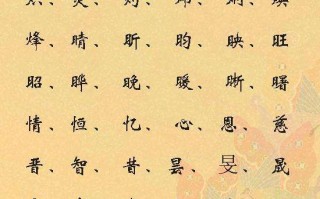 烽、晴、昕、昀、映、旺
昭、晔、晚、暖、晰、曙
情、恒、忆、心、恩、慈
晋、智、昔、昙、旻、晟